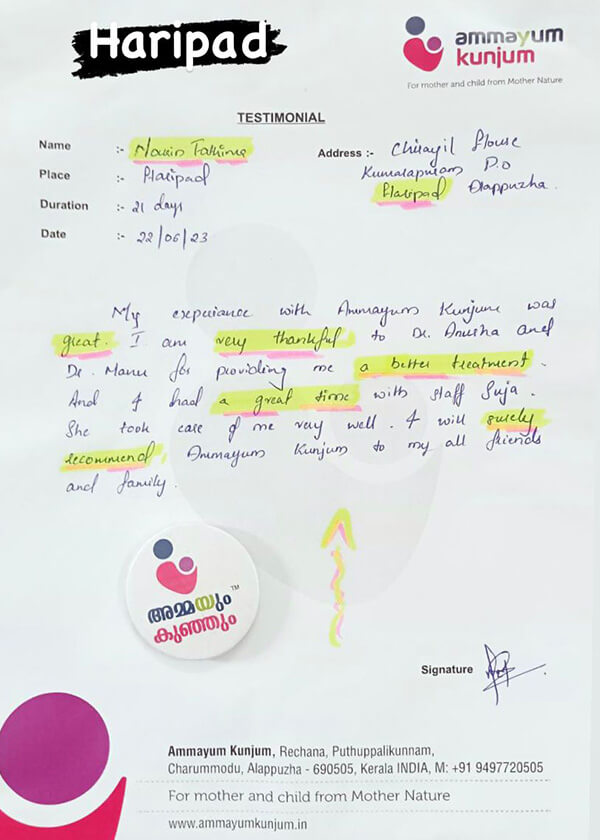 Haripad
ammayum
kunjum
For mother and child from Mother Nature
TESTIMONIAL
Name :- Fathima
Place :- Haripad
Duration :- 21 days
Date :- 22/06/23
Address :- Chirayil House
Kumarapuram P.O
Haripad Alappuzha.
My experiance with Ammayum Kunjum was
great. I am very thankful to Dr. Anusha and
Dr. Manu for providing me a better treatment.
And I had a great time with staff Suja.
She took care of me very well. I will surely
recommend Ammayum Kunjum to my all friends
and family.
അമ്മയും TM
കുഞ്ഞും
Signature
Ammayum Kunjum, Rechana, Puthuppalikunnam,
Charummodu, Alappuzha - 690505, Kerala INDIA, M: +91 9497720505
For mother and child from Mother Nature
www.ammayumkunjum.in